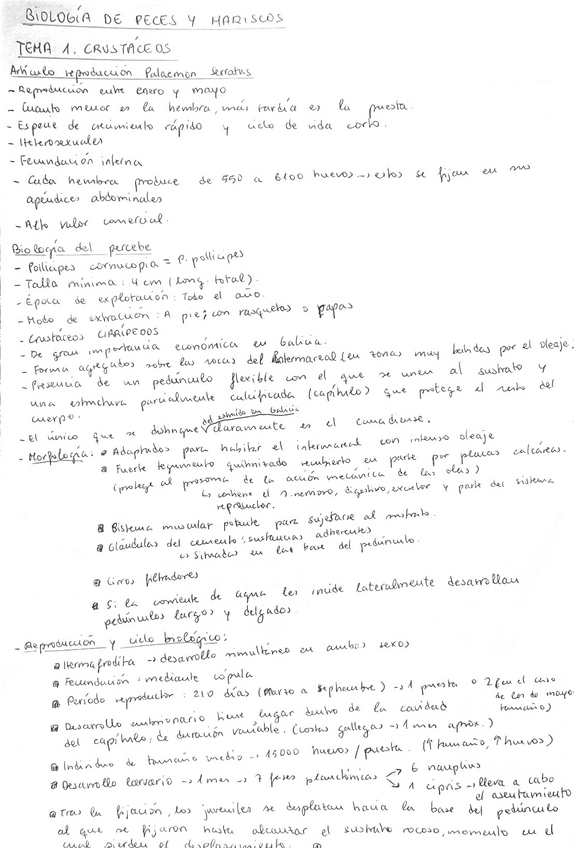 BIOLOGÍA DE PECES Y MARISCOS
TEMA 1. CRUSTÁCEOS
Artículo reproducción Palaemon serratus
- Reproducción entre enero y mayo
- Cuanto menor es la hembra, más tardía es la puesta.
- Especie de crecimiento rápido y ciclo de vida corto.
- Heterosexuales
- Fecundación interna
- Cada hembra produce de 550 a 6100 huevos → estos se fijan en sus
apéndices abdominales
- Alto valor comercial.
Biología del percebe
- Pollicipes cornucopia = P. pollicipes
- Talla mínima: 4 cm (long. total).
- Época de explotación: Todo el año.
- Modo de extracción: A pie; con rasquetas o papas
- Crustáceos CIRRÍPEDOS
- De gran importancia económica en Galicia.
- Forma agregados sobre las rocas del intermareal (en zonas muy batidas por el oleaje)
- Presencia de un pedúnculo flexible con el que se unen al sustrato y
una estructura parcialmente calcificada (capítulo) que protege el resto del
cuerpo.
del extraído en Galicia
- El único que se distingue claramente es el canadiense.
- Morfología: Adaptados para habitar el intermareal con intenso oleaje
Fuerte tegumento quitinizado recubierto en parte por placas calcáreas.
(protege al prosoma de la acción mecánica de las olas)
↳ contiene el s. nervioso, digestivo, excretor y parte del sistema
reproductor.
Sistema muscular potente para sujetarse al sustrato.
Glándulas del cemento: sustancias adherentes
↳ Situadas en la base del pedúnculo.
Cirros filtradores
Si la corriente de agua les incide lateralmente desarrollan
pedúnculos largos y delgados
- Reproducción y ciclo biológico:
Hermafrodita → desarrollo simultáneo en ambos sexos
Fecundación mediante cópula
Período reproductor: 210 días (Marzo a Septiembre) → 1 puesta o 2 (en el caso
de los de mayor
tamaño)
Desarrollo embrionario tiene lugar dentro de la cavidad
del capítulo, de duración variable. (costas gallegas → 1 mes aprox.)
Individuo de tamaño medio → 15000 huevos/puesta. (↑ tamaño, ↑ huevos)
Desarrollo larvario → 1 mes → 7 fases planctónicas 6 nauplius
1 cipris → lleva a cabo
el asentamiento
Tras la fijación, los juveniles se desplazan hacia la base del pedúnculo
al que se fijaron hasta alcanzar el sustrato rocoso, momento en el
cual pierden el desplazamiento.